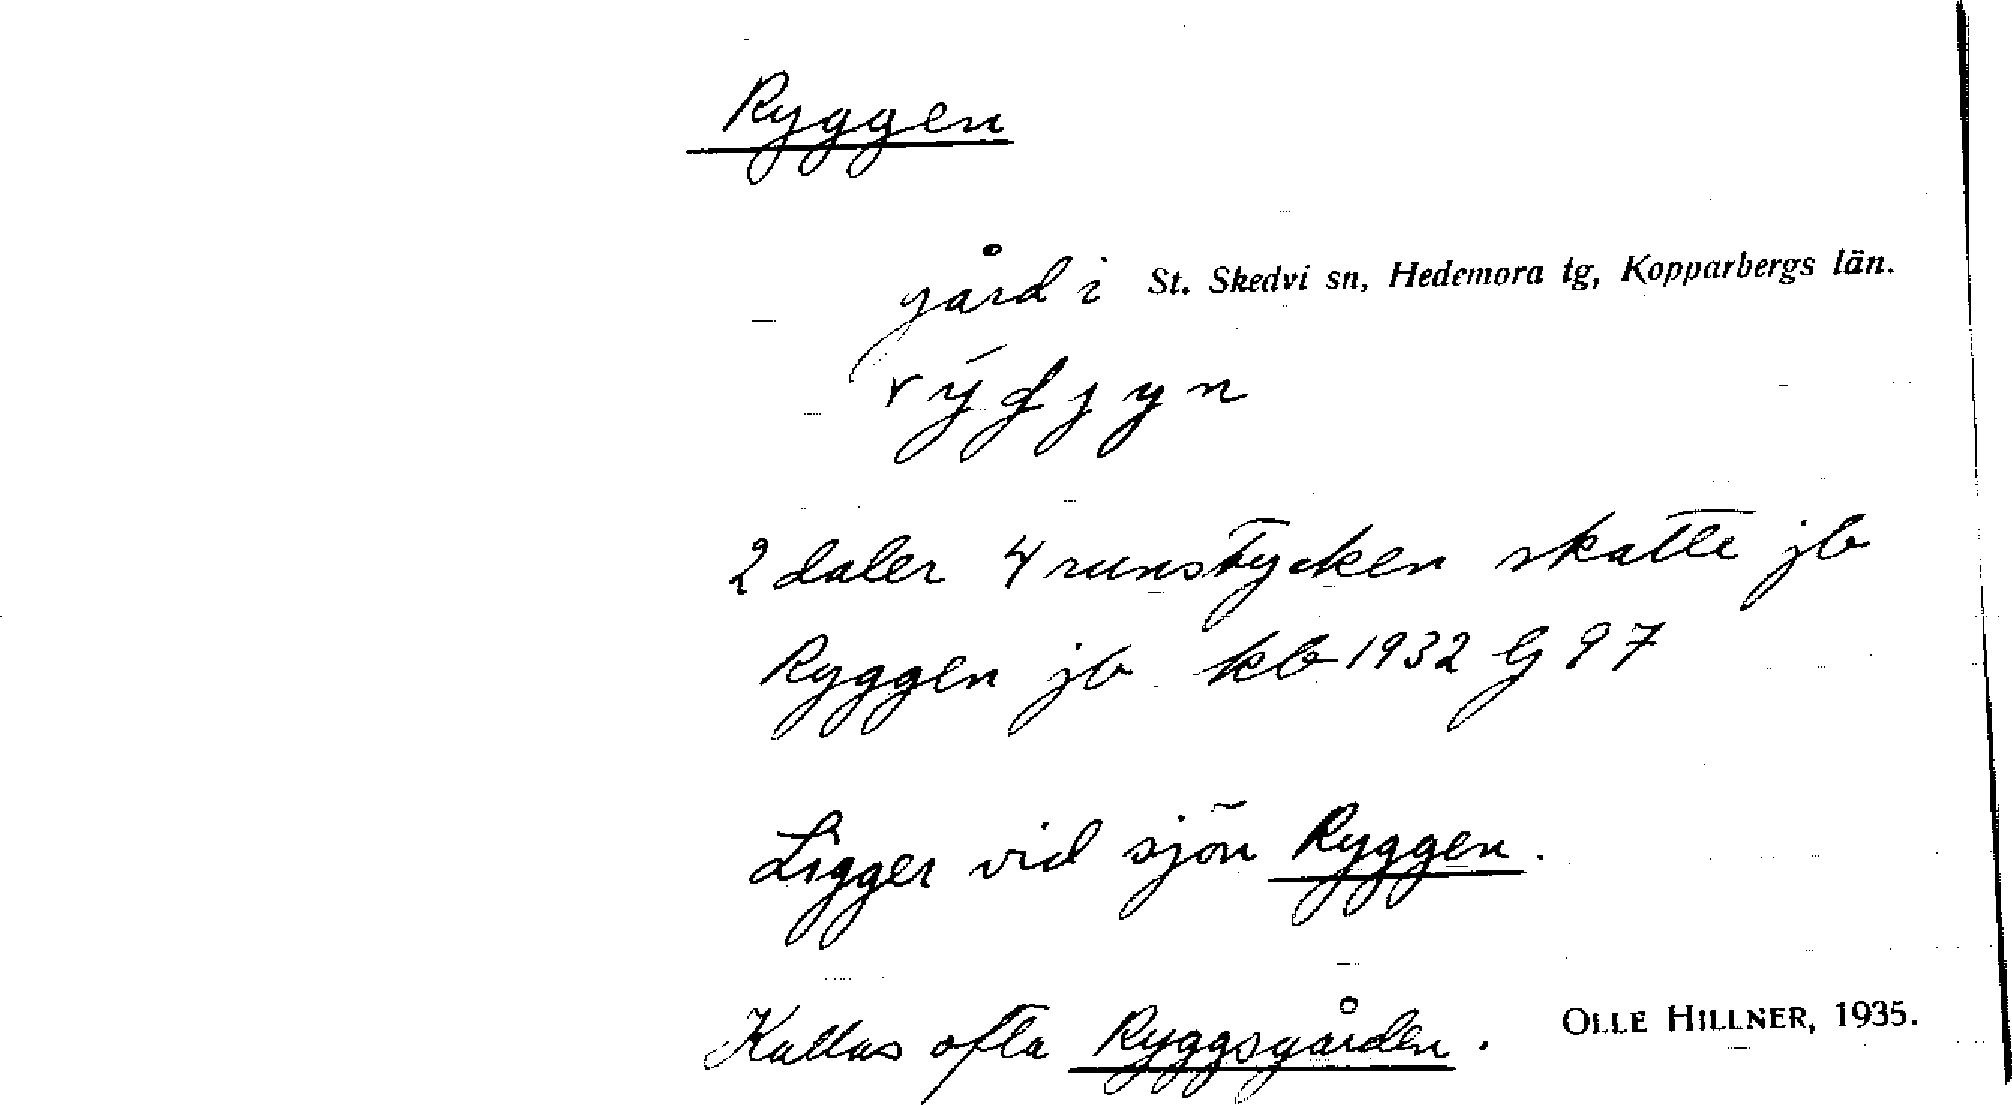 Ryggen
gård i St. Skedvi sn, Hedemora tg, Kopparbergs län.
2 daler 4 runstycken skatte jb
Ryggen jb kb 1932 G 97
Ligger vid sjön Ryggen.
Kallas ofta Ryggsgården. OLLE HILLNER, 1935.